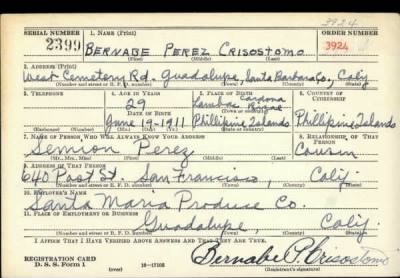 3924
SERIAL NUMBER 1. NAME (Print) ORDER NUMBER
2399 BERNABE PEREZ CRISOSTOMO 3924
(First) (Middle) (Last)
2. ADDRESS (Print)
West Cemetery Rd. Guadalupe, Santa Barbara Co., Calif
(Number and street or R. F. D. number) (Town) (County) (State)
3. TELEPHONE 4. AGE IN YEARS 5. PLACE OF BIRTH 6. COUNTRY OF CITIZENSHIP
29 Cardona
DATE OF BIRTH
June 19-1911 Phillipine Islands Phillipine Islands
(Exchange) (Number) (Mo.) (Day) (Yr.) (State or county)
7. NAME OF PERSON WHO WILL ALWAYS KNOW YOUR ADDRESS 8. RELATIONSHIP OF THAT PERSON
Semion Perez Cousin
(Mr., Mrs., Miss) (First) (Middle) (Last)
9. ADDRESS OF THAT PERSON
640 Post St. San Francisco, Calif.
(Number and street or R. F. D. number) (Town) (County) (State)
10. EMPLOYER'S NAME
Santa Maria Produce Co.
11. PLACE OF EMPLOYMENT OR BUSINESS
Guadalupe, Calif.
(Number and street or R. F. D. number) (Town) (County) (State)
I AFFIRM THAT I HAVE VERIFIED ABOVE ANSWERS AND THAT THEY ARE TRUE.
REGISTRATION CARD
D. S. S. Form 1 (over) 16-17105 Bernabe P. Crisostomo
(Registrant's signature)